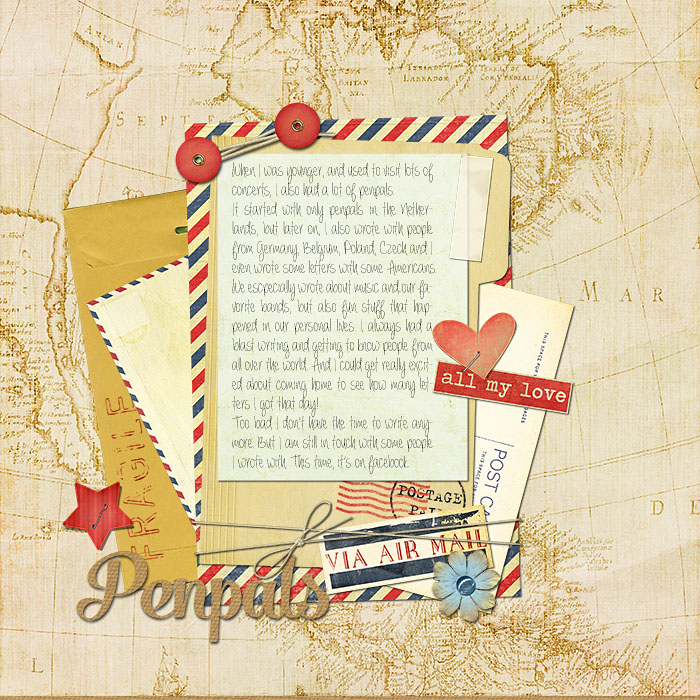 SEPTEN
LABRADOR
MAR
DE
When I was younger, and used to visit lots of
concerts, I also had a lot of penpals.
It started with only penpals in the Nether-
lands, but later on, I also wrote with people
from Germany, Belgium, Poland, Czech and I
even wrote some letters with some Americans.
We escpecially wrote about music and our fa-
vorite bands, but also fun stuff that hap-
pened in our personal lives. I always had a
blast writing and getting to know people from
all over the world. And I could get really excit-
ed about coming home to see how many let-
ters I got that day!
Too bad I don't have the time to write any-
more. But I am still in touch with some people
I wrote with. This time, it's on facebook.
all my love
THIS SPACE FOR
POST CA
THIS SPACE
FRAGILE
POSTAGE
PAI
VIA AIR MAIL
Penpals